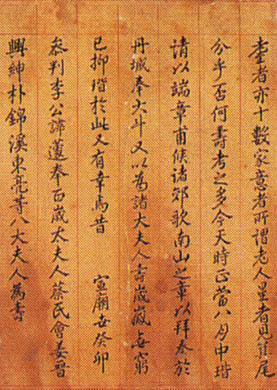 耋者亦十數家意者所謂老人星者見箕尾
分乎否何壽考之多今天時正當八月中瑎
請以端章甫候諸郊歌南山之章以拜奉於
丹城奉大斗又以為諸大夫人壽歲歲無窮
已抑瑎於此又有幸焉昔 宣廟世癸卯
叅判李公諱蘧奉百歲太夫人蔡氏會姜晉
興紳朴錦溪東亮等八大夫人為壽